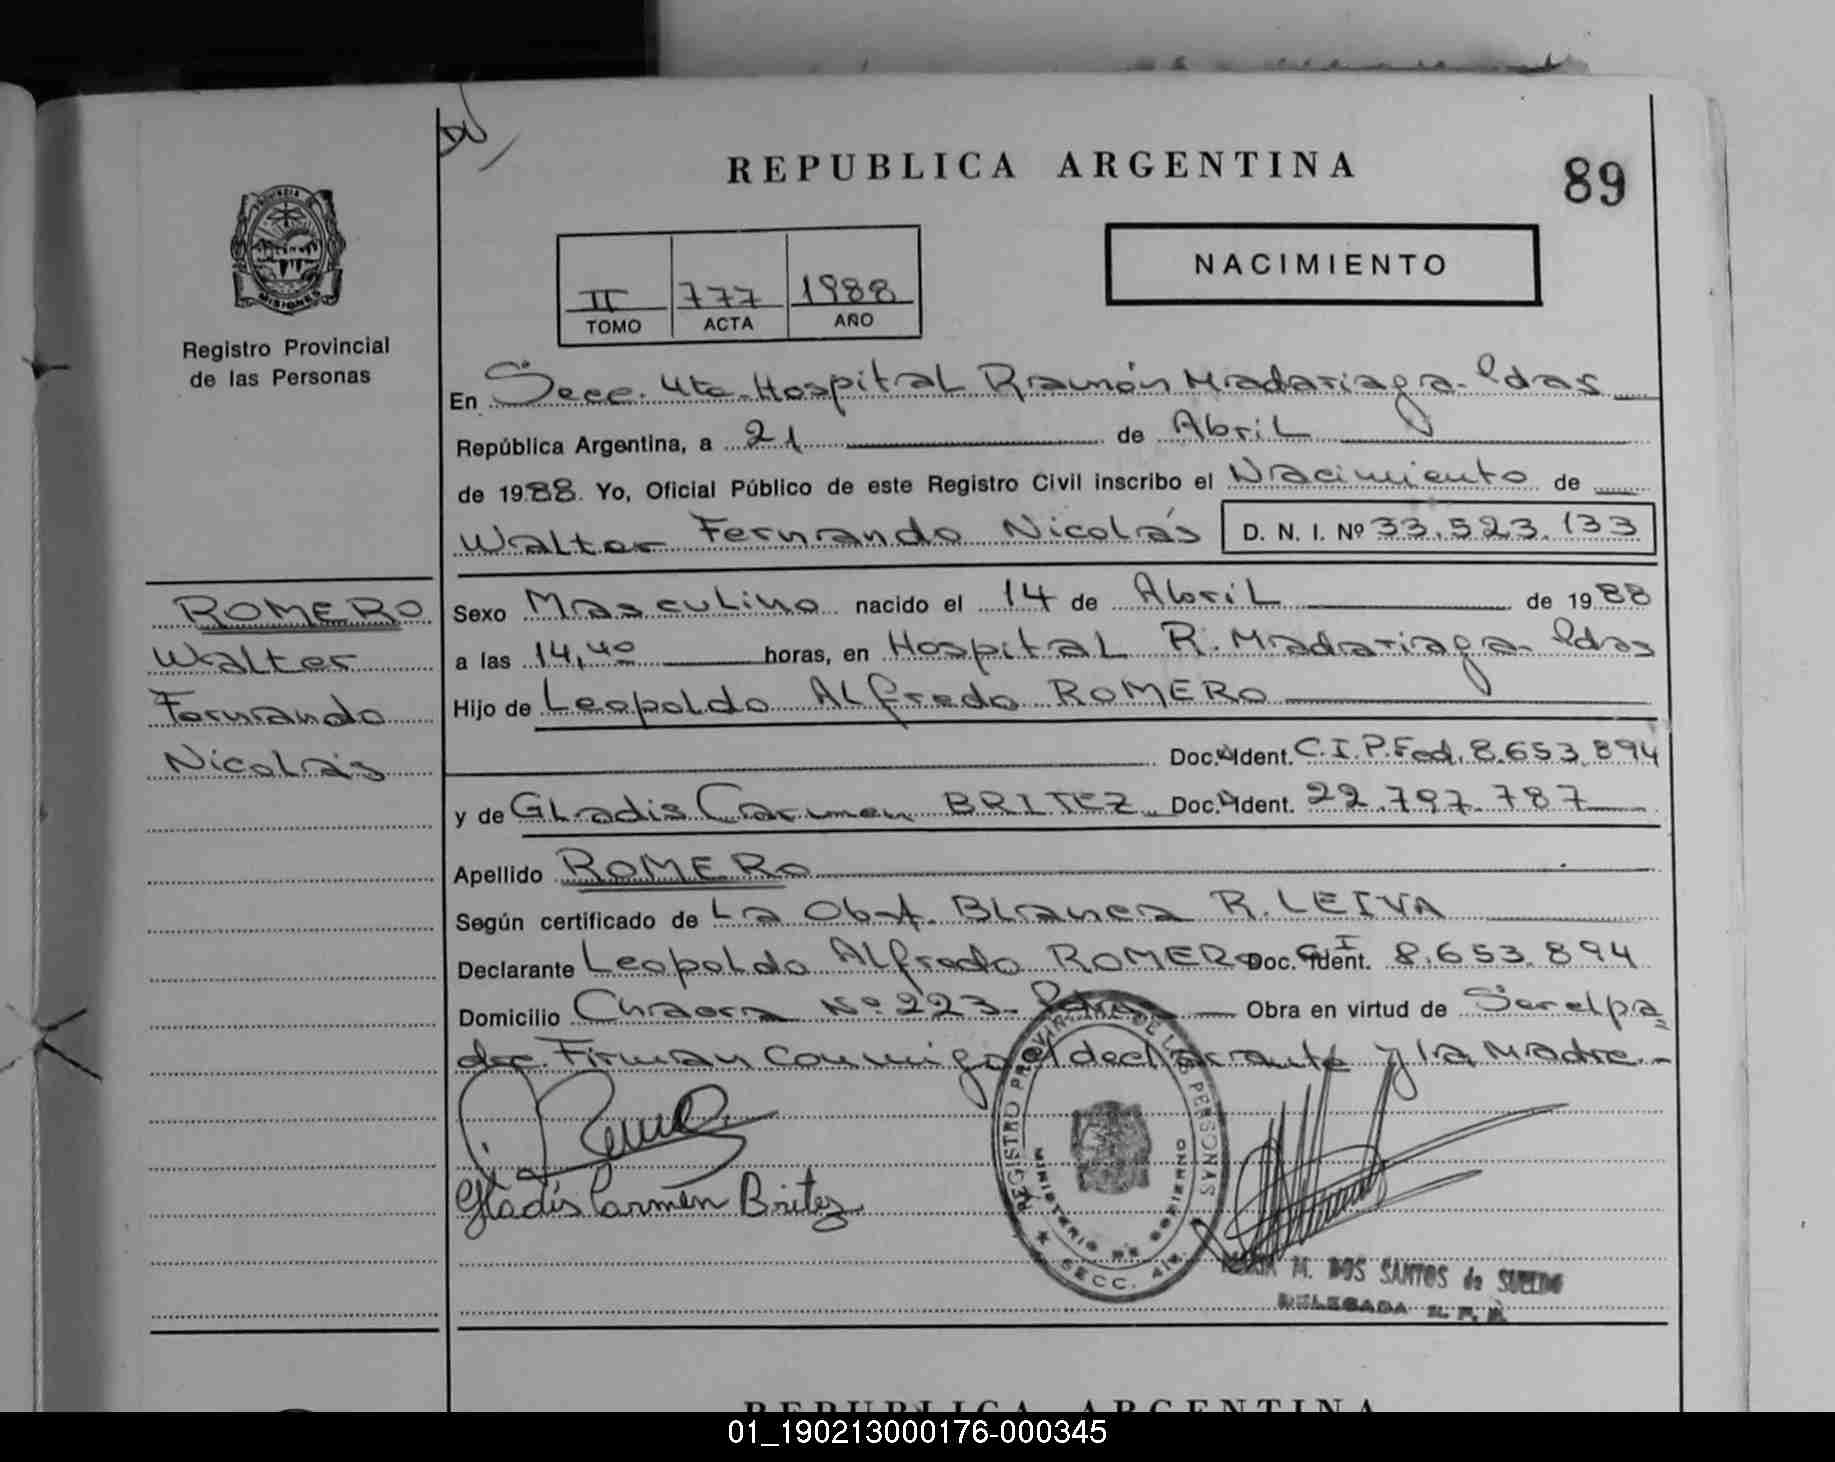 REPUBLICA ARGENTINA
89
NACIMIENTO
II 777 1988
TOMO ACTA AÑO
PROVINCIA DE
MISIONES
Registro Provincial
de las Personas
En Secc. 4ta. Hospital Ramón Madariaga. Pdas
República Argentina, a 21 de Abril
de 1988. Yo, Oficial Público de este Registro Civil inscribo el Nacimiento de
Walter Fernando Nicolás D. N. I. Nº 33.523.133
ROMERO
Walter
Fernando
Nicolás
Sexo Masculino nacido el 14 de Abril de 1988
a las 14,40 horas, en Hospital R. Madariaga. Pdas
Hijo de Leopoldo Alfredo ROMERO
Doc. Ident. C.I.P.Fed. 8.653.894
y de Gladis Carmen BRITEZ Doc. Ident. 22.797.787
Apellido ROMERO
Según certificado de La Obst. Blanca R. LEIVA
Declarante Leopoldo Alfredo ROMERO Doc. Ident. C.I 8.653.894
Domicilio Chacra Nº 223. Pdas Obra en virtud de Ser el pa
dre. Firman conmigo el declarante y la madre.-
Gladis Carmen Britez
REGISTRO PROVINCIAL DE LAS PERSONAS
MINISTERIO DE GOBIERNO
SECC. 4ta.
M. DOS SANTOS de SUELDO
DELEGADA R. P. P.
REPUBLICA ARGENTINA
01_190213000176-000345